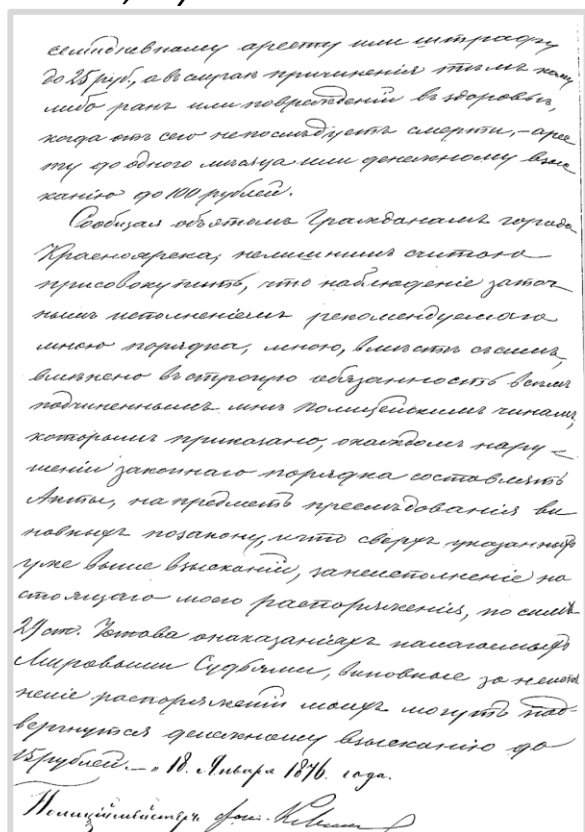 семидневному аресту или штрафу
до 25 руб., а въ случаѣ причиненія тѣмъ кому
либо ранъ или поврежденій въ здоровьѣ,
когда отъ сего непослѣдуетъ смерти, – арес
ту до одного мѣсяца или денежному взыс
канію до 100 рублей.
Сообщая объэтомъ Гражданамъ города
Красноярска, нелишнимъ считаю
присовокупить, что наблюденіе заточ
нымъ исполненіемъ рекомендуемаго
мною порядка, мною, вмѣстѣ съсимъ,
вмѣнено въстрогую обязанность всѣмъ
подчиненнымъ мнѣ Полицейскимъ чинамъ,
которымъ приказано, окаждомъ нару=
шеніи законнаго порядка составлять
Акты, на предметъ преслѣдованія ви
новныхъ позакону, и что сверхъ указанныхъ
уже выше взысканій, занеисполненіе на
стоящаго моего распоряженія, по силѣ
29 ст. Устава онаказаніяхъ налагаемыхъ
Мировыми Судьями, виновные за неиспол
неніе распоряженій моихъ могутъ под
вергнутся денежному взысканію до
15 рублей. – „18. Января 1876. года.
Полиціймейстеръ фон-